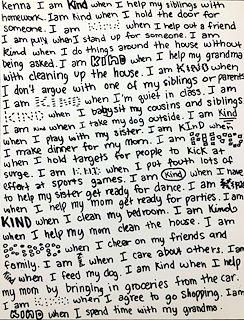 Kenna I am Kind when I help my siblings with
homework. I am kind when I hold the door for
someone. I am when I help out a friend
I am kind when I stand up for someone. I am
kind when I do things around the house without
being asked. I am KIND when I help my grandma
with cleaning up the house. I am KIND when
I don't argue with one of my siblings or parents
I am when I'm quiet in class. I am
when I babysit my cousins and siblings
I am kind when I take my dog outside. I am Kind
when I play with my sister. I am KIND when
I make dinner for my mom. I am
when I hold targets for people to kick at
surge. I am when I put fouth lots of
effort at sports games. I am Kind when I have
to help my sister get ready for dance. I am
when I help my mom get ready for parties. I am
KIND when I clean my bedroom. I am Kind
when I help my mom clean the house. I am
when I cheer on my friends and
family. I am when I care about others. I am
when I feed my dog. I am Kind when I help
my mom by bringing in groceries from the car.
I am when I agree to go shopping. I am
KIND when I spend time with my grandma.